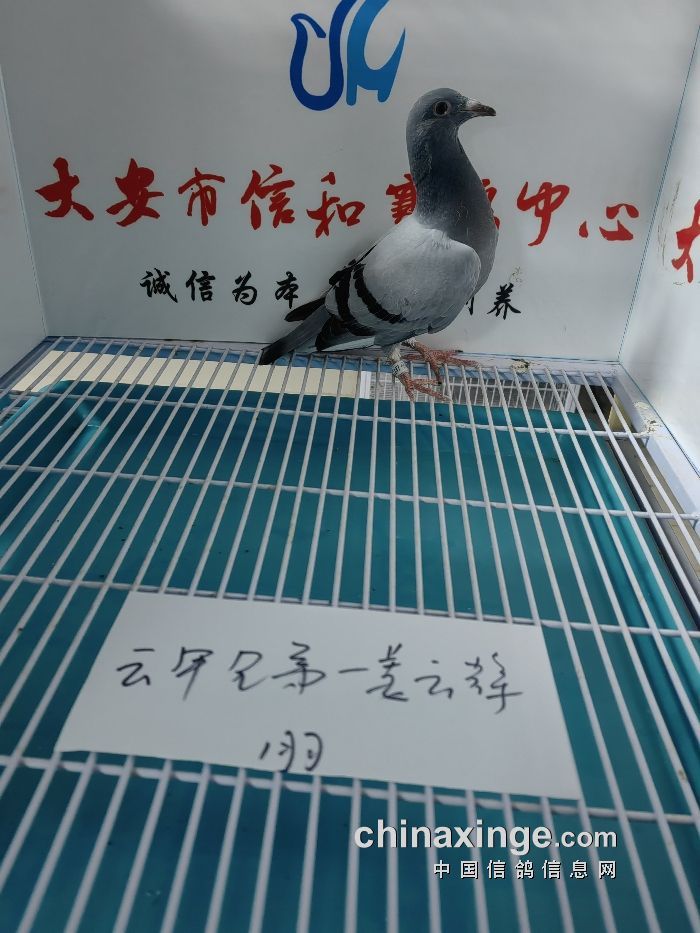 大安市信和赛鸽中心
诚信为本 养
云军兄弟一姜云辉
1羽
chinaxinge.com
中国信鸽信息网